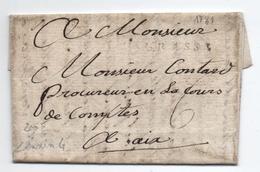 1783
A Monsieur
GRASSE
Monsieur Contard
Procureur en La Cours
de Comptes 6
A aix